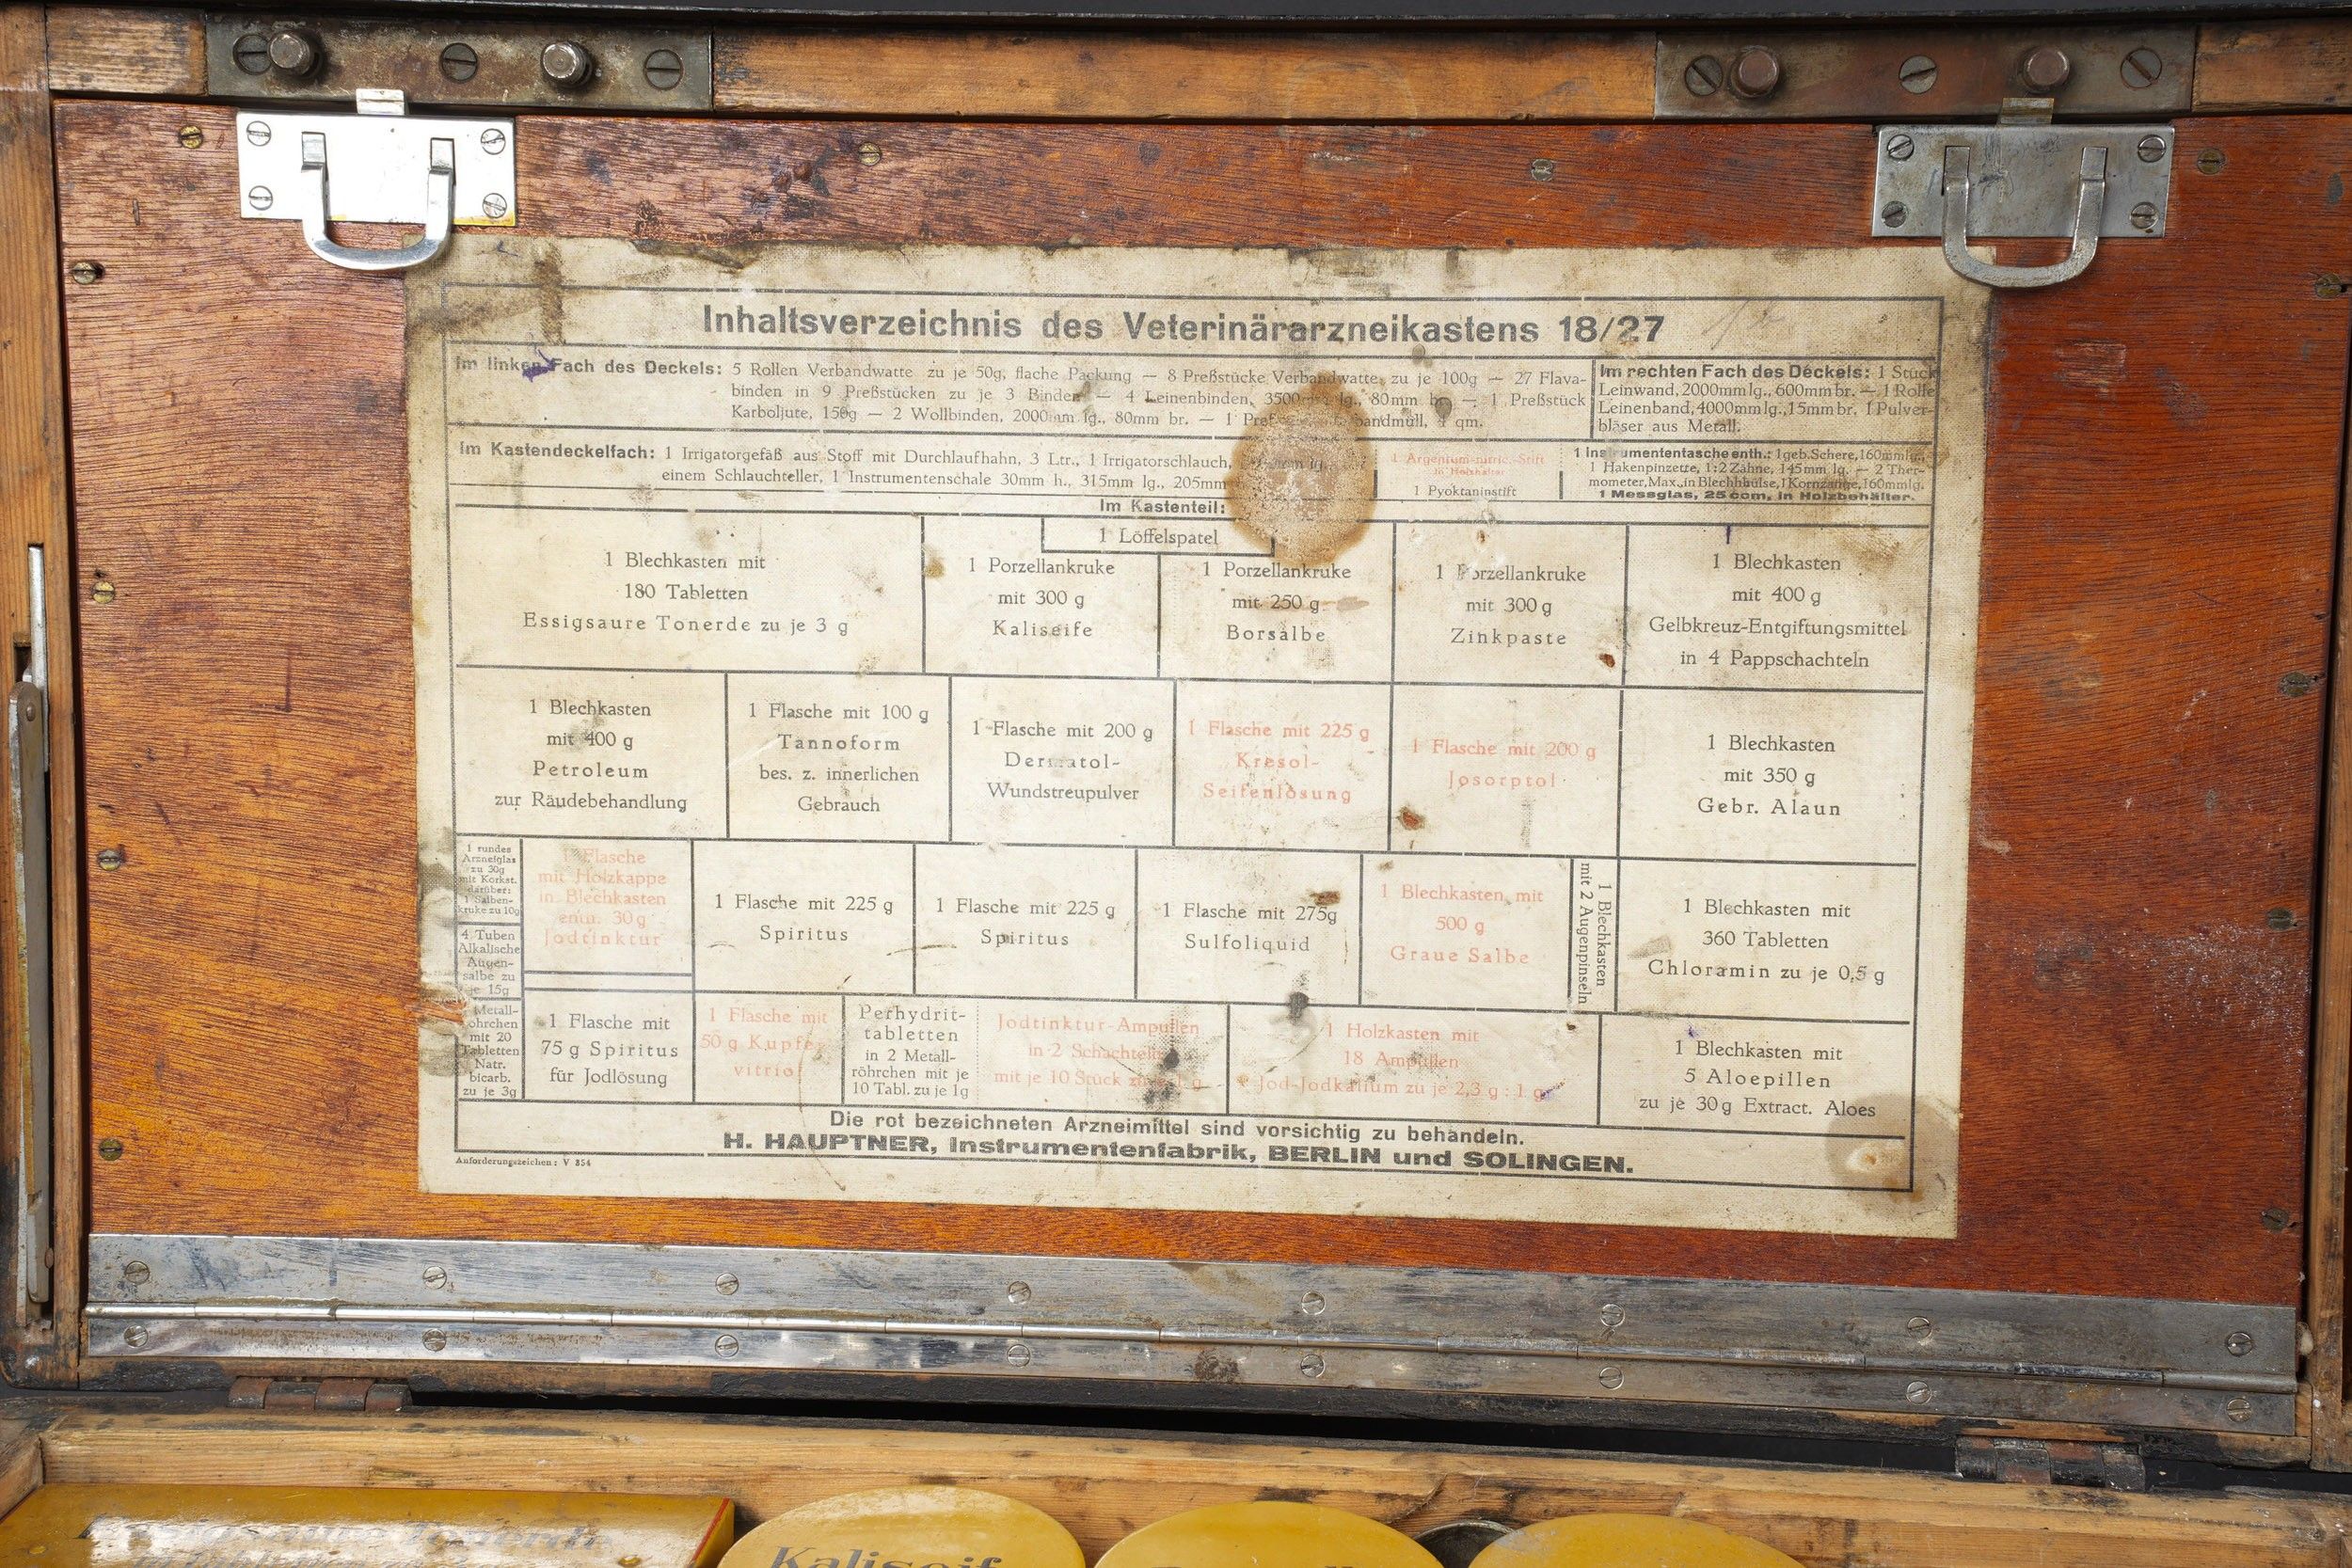 Inhaltsverzeichnis des Veterinärarzneikastens 18/27
Im linken Fach des Deckels: 5 Rollen Verbandwatte zu je 50g, flache Packung — 8 Preßstücke Verbandwatte zu je 100g — 27 Flava-
binden in 9 Preßstücken zu je 3 Binden — 4 Leinenbinden, 3500 lg., 80mm br. — 1 Preßstück
Karboljute, 150g — 2 Wollbinden, 2000mm lg., 80mm br. — 1 qm.
Im rechten Fach des Deckels: 1 Stück
Leinwand, 2000mm lg., 600mm br. — 1 Rolle
Leinenband, 4000mm lg., 15mm br. 1 Pulver-
bläser aus Metall.
Im Kastendeckelfach: 1 Irrigatorgefäß aus Stoff mit Durchlaufhahn, 3 Ltr., 1 Irrigatorschlauch,
einem Schlauchteller, 1 Instrumentenschale 30mm h., 315mm lg., 205mm
1 Argentum-nitric.-Stift
in Holzhalter
1 Pyoktaninstift
1 Instrumententasche enth.: 1 geb. Schere, 160mm lg.,
1 Hakenpinzette, 1:2 Zähne, 145mm lg. — 2 Ther-
mometer, Max., in Blechhülse, 1 Kornzange, 160mm lg.
1 Messglas, 25 ccm, in Holzbehälter.
Im Kastenteil:
1 Löffelspatel
1 Blechkasten mit
180 Tabletten
Essigsaure Tonerde zu je 3 g
1 Porzellankruke
mit 300 g
Kaliseife
1 Porzellankruke
mit 250 g
Borsalbe
1 Porzellankruke
mit 300 g
Zinkpaste
1 Blechkasten
mit 400 g
Gelbkreuz-Entgiftungsmittel
in 4 Pappschachteln
1 Blechkasten
mit 400 g
Petroleum
zur Räudebehandlung
1 Flasche mit 100 g
Tannoform
bes. z. innerlichen
Gebrauch
1 Flasche mit 200 g
Dermatol-
Wundstreupulver
1 Flasche mit 225 g
Kresol-
Seifenlösung
1 Flasche mit 200 g
Josorptol
1 Blechkasten
mit 350 g
Gebr. Alaun
1 rundes
Arzneiglas
zu 30g
mit Korkst.
darüber:
1 Salben-
kruke zu 10g
4 Tuben
Alkalische
Augen-
salbe zu
je 15g
1 Flasche
mit Holzkappe
in Blechkasten
enth. 30 g
Jodtinktur
1 Flasche mit 225 g
Spiritus
1 Flasche mit 225 g
Spiritus
1 Flasche mit 275g
Sulfoliquid
1 Blechkasten mit
500 g
Graue Salbe
1 Blechkasten
mit 2 Augenpinseln
1 Blechkasten mit
360 Tabletten
Chloramin zu je 0,5 g
Metall-
röhrchen
mit 20
Tabletten
Natr.
bicarb.
zu je 3g
1 Flasche mit
75 g Spiritus
für Jodlösung
1 Flasche mit
50 g Kupfer-
vitriol
Perhydrit-
tabletten
in 2 Metall-
röhrchen mit je
10 Tabl. zu je 1g
Jodtinktur-Ampullen
in 2 Schachteln
mit je 10 Stück zu je 1 g
1 Holzkasten mit
18 Ampullen
Jod-Jodkalium zu je 2,3 g : 1 g
1 Blechkasten mit
5 Aloepillen
zu je 30 g Extract. Aloes
Die rot bezeichneten Arzneimittel sind vorsichtig zu behandeln.
H. HAUPTNER, Instrumentenfabrik, BERLIN und SOLINGEN.
Anforderungszeichen: V 354
Essigsaure Tonerde
Kaliseif